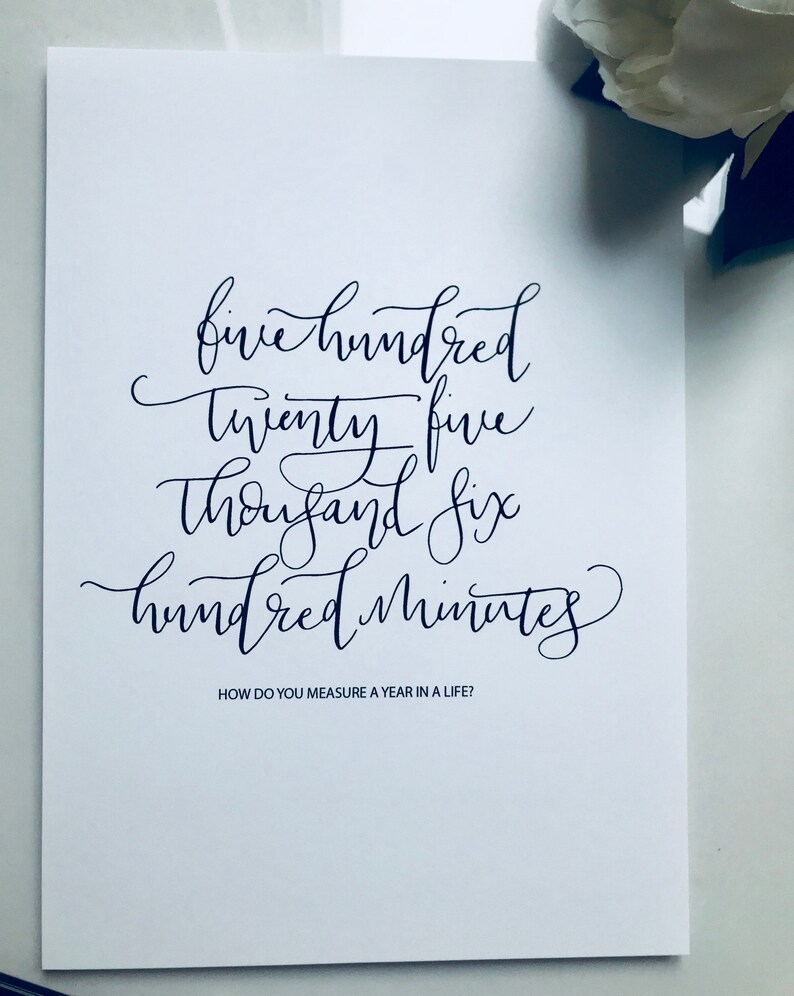 five hundred
twenty five
thousand six
hundred minutes
HOW DO YOU MEASURE A YEAR IN A LIFE?